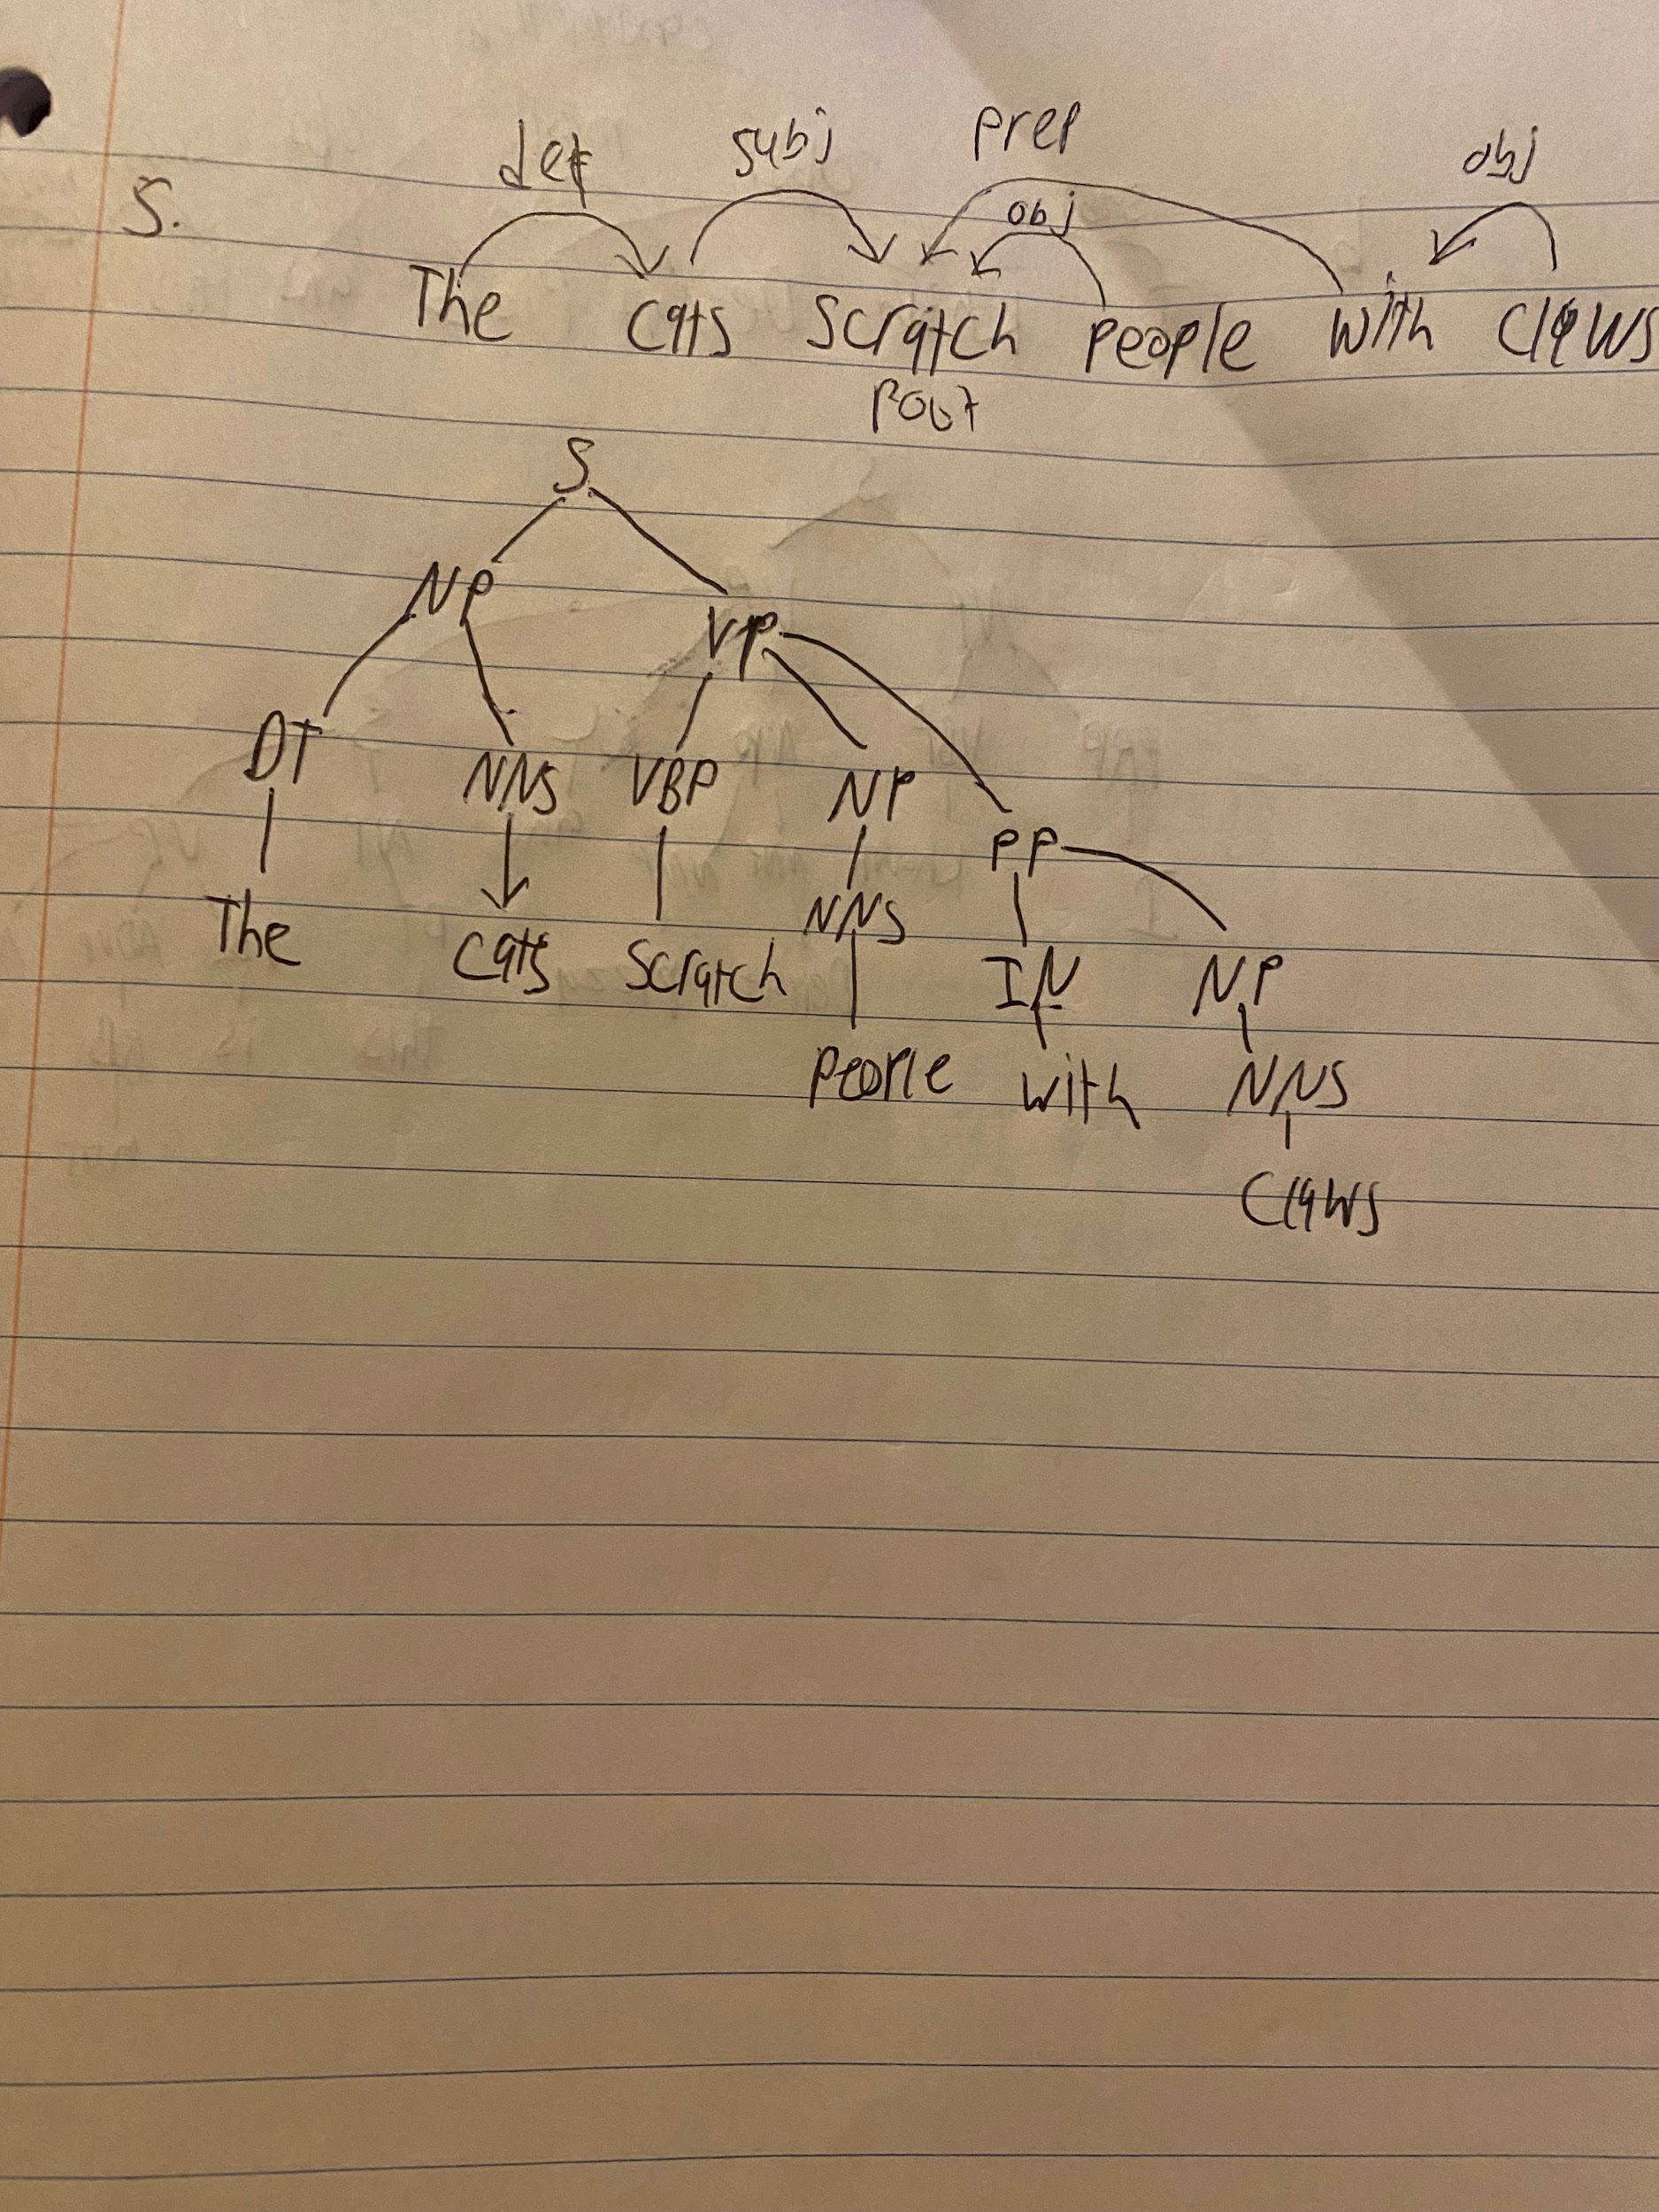 det subj prep obj
5. obj
The cats scratch people with claws
root
S
NP VP
DT NNS VBP NP PP
The cats scratch NNS IN NP
people with NNS
claws